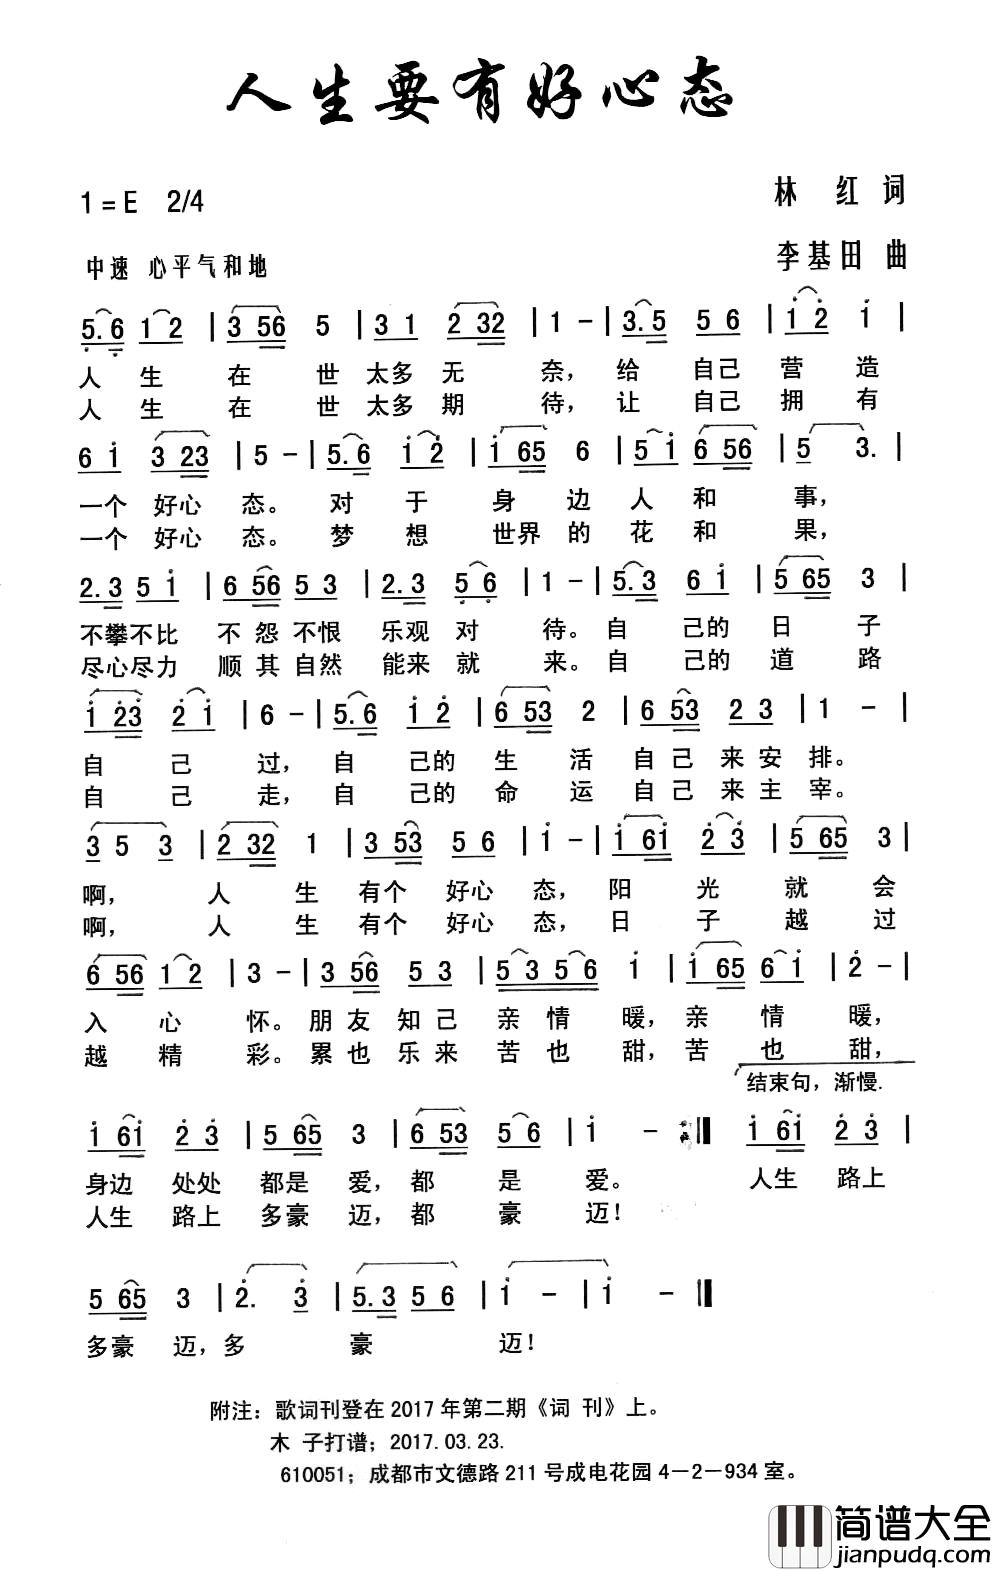 人生要有好心态
1=E 2/4
林 红 词
中速 心平气和地
李基田 曲
5.6 1 2 | 3 56 5 | 3 1 2 32 | 1 - | 3.5 5 6 | 1 2 1 |
人 生 在 世 太多 无 奈, 给 自己 营 造
人 生 在 世 太多 期 待, 让 自己 拥 有
6 1 3 23 | 5 - | 5.6 1 2 | 1 65 6 | 5 1 6 56 | 5 3. |
一个 好心 态。 对 于 身 边 人 和 事,
一个 好心 态。 梦 想 世界 的 花 和 果,
2.3 5 1 | 6 56 5 3 | 2.3 5 6 | 1 - | 5.3 6 1 | 5 65 3 |
不攀不比 不 怨 不恨 乐观 对 待。 自 己的 日 子
尽心尽力 顺 其 自然 能来 就 来。 自 己的 道 路
1 23 2 1 | 6 - | 5.6 1 2 | 6 53 2 | 6 53 2 3 | 1 - |
自 己 过, 自 己的 生 活 自 己 来 安 排。
自 己 走, 自 己的 命 运 自 己 来 主 宰。
3 5 3 | 2 32 1 | 3 53 5 6 | 1 - | 1 61 2 3 | 5 65 3 |
啊, 人 生 有个 好心 态, 阳 光 就 会
啊, 人 生 有个 好心 态, 日 子 越 过
6 56 1 2 | 3 - | 3 56 5 3 | 5 3 5 6 1 | 1 65 6 1 | 2 - |
入 心 怀。 朋 友 知 己 亲 情 暖, 亲 情 暖,
越 精 彩。 累 也 乐 来 苦 也 甜, 苦 也 甜,
结束句, 渐慢.
1 61 2 3 | 5 65 3 | 6 53 5 6 | 1 - :‖ 1 61 2 3 |
身边 处处 都是 爱, 都 是 爱。 人生 路上
人生 路上 多豪 迈, 都 豪 迈!
5 65 3 | 2. 3 | 5.3 5 6 | 1 - | 1 - ‖
多豪 迈, 多 豪 迈!
附注: 歌词刊登在 2017 年第二期《词 刊》上。
木 子打谱; 2017.03.23.
610051; 成都市文德路 211 号成电花园 4－2－934 室。
简谱大全
jianpudq.com